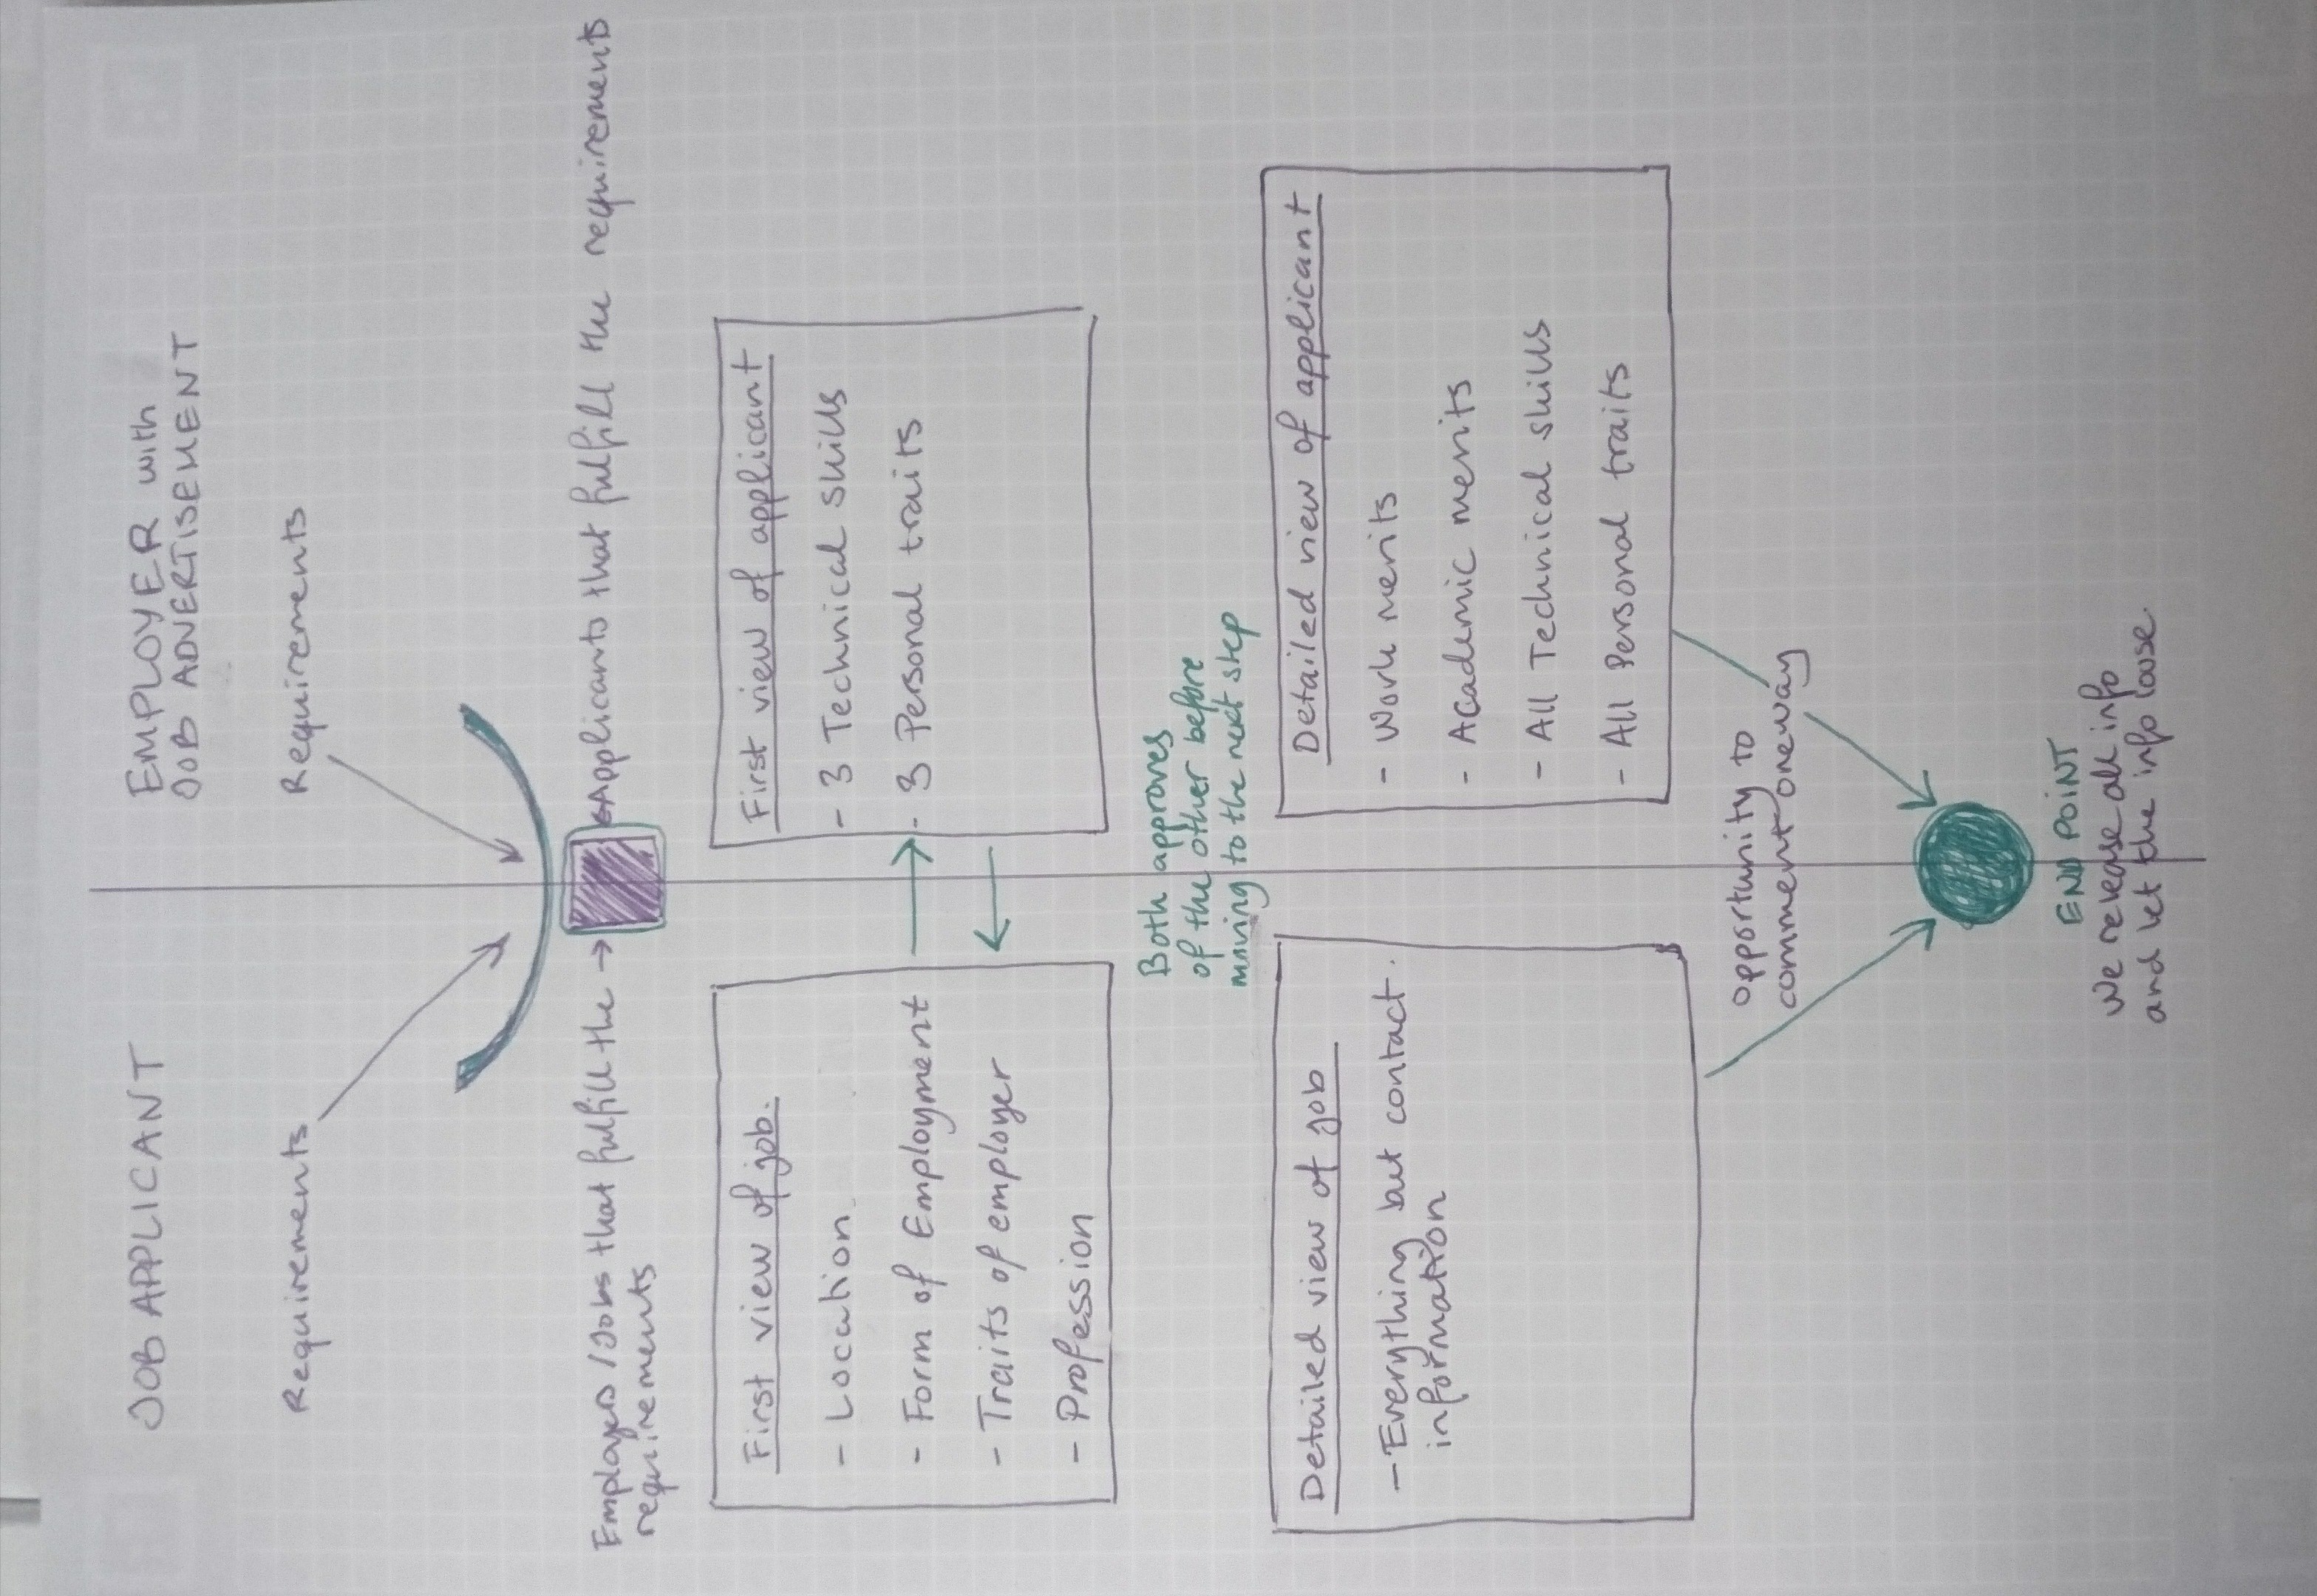 JOB APPLICANT
EMPLOYER with
JOB ADVERTISEMENT
Requirements
Requirements
Employers / Jobs that fulfill the →
requirements
←Applicants that fulfill the requirements
First view of job.
- Location
- Form of Employment
- Traits of employer
- Profession
First view of applicant
- 3 Technical skills
- 3 Personal traits
Both approves
of the other before
moving to the next step
Detailed view of job
- Everything but contact
information
Detailed view of applicant
- Work merits
- Academic merits
- All Technical skills
- All Personal traits
opportunity to
comment oneway
END POINT
We release all info
and let the info loose.